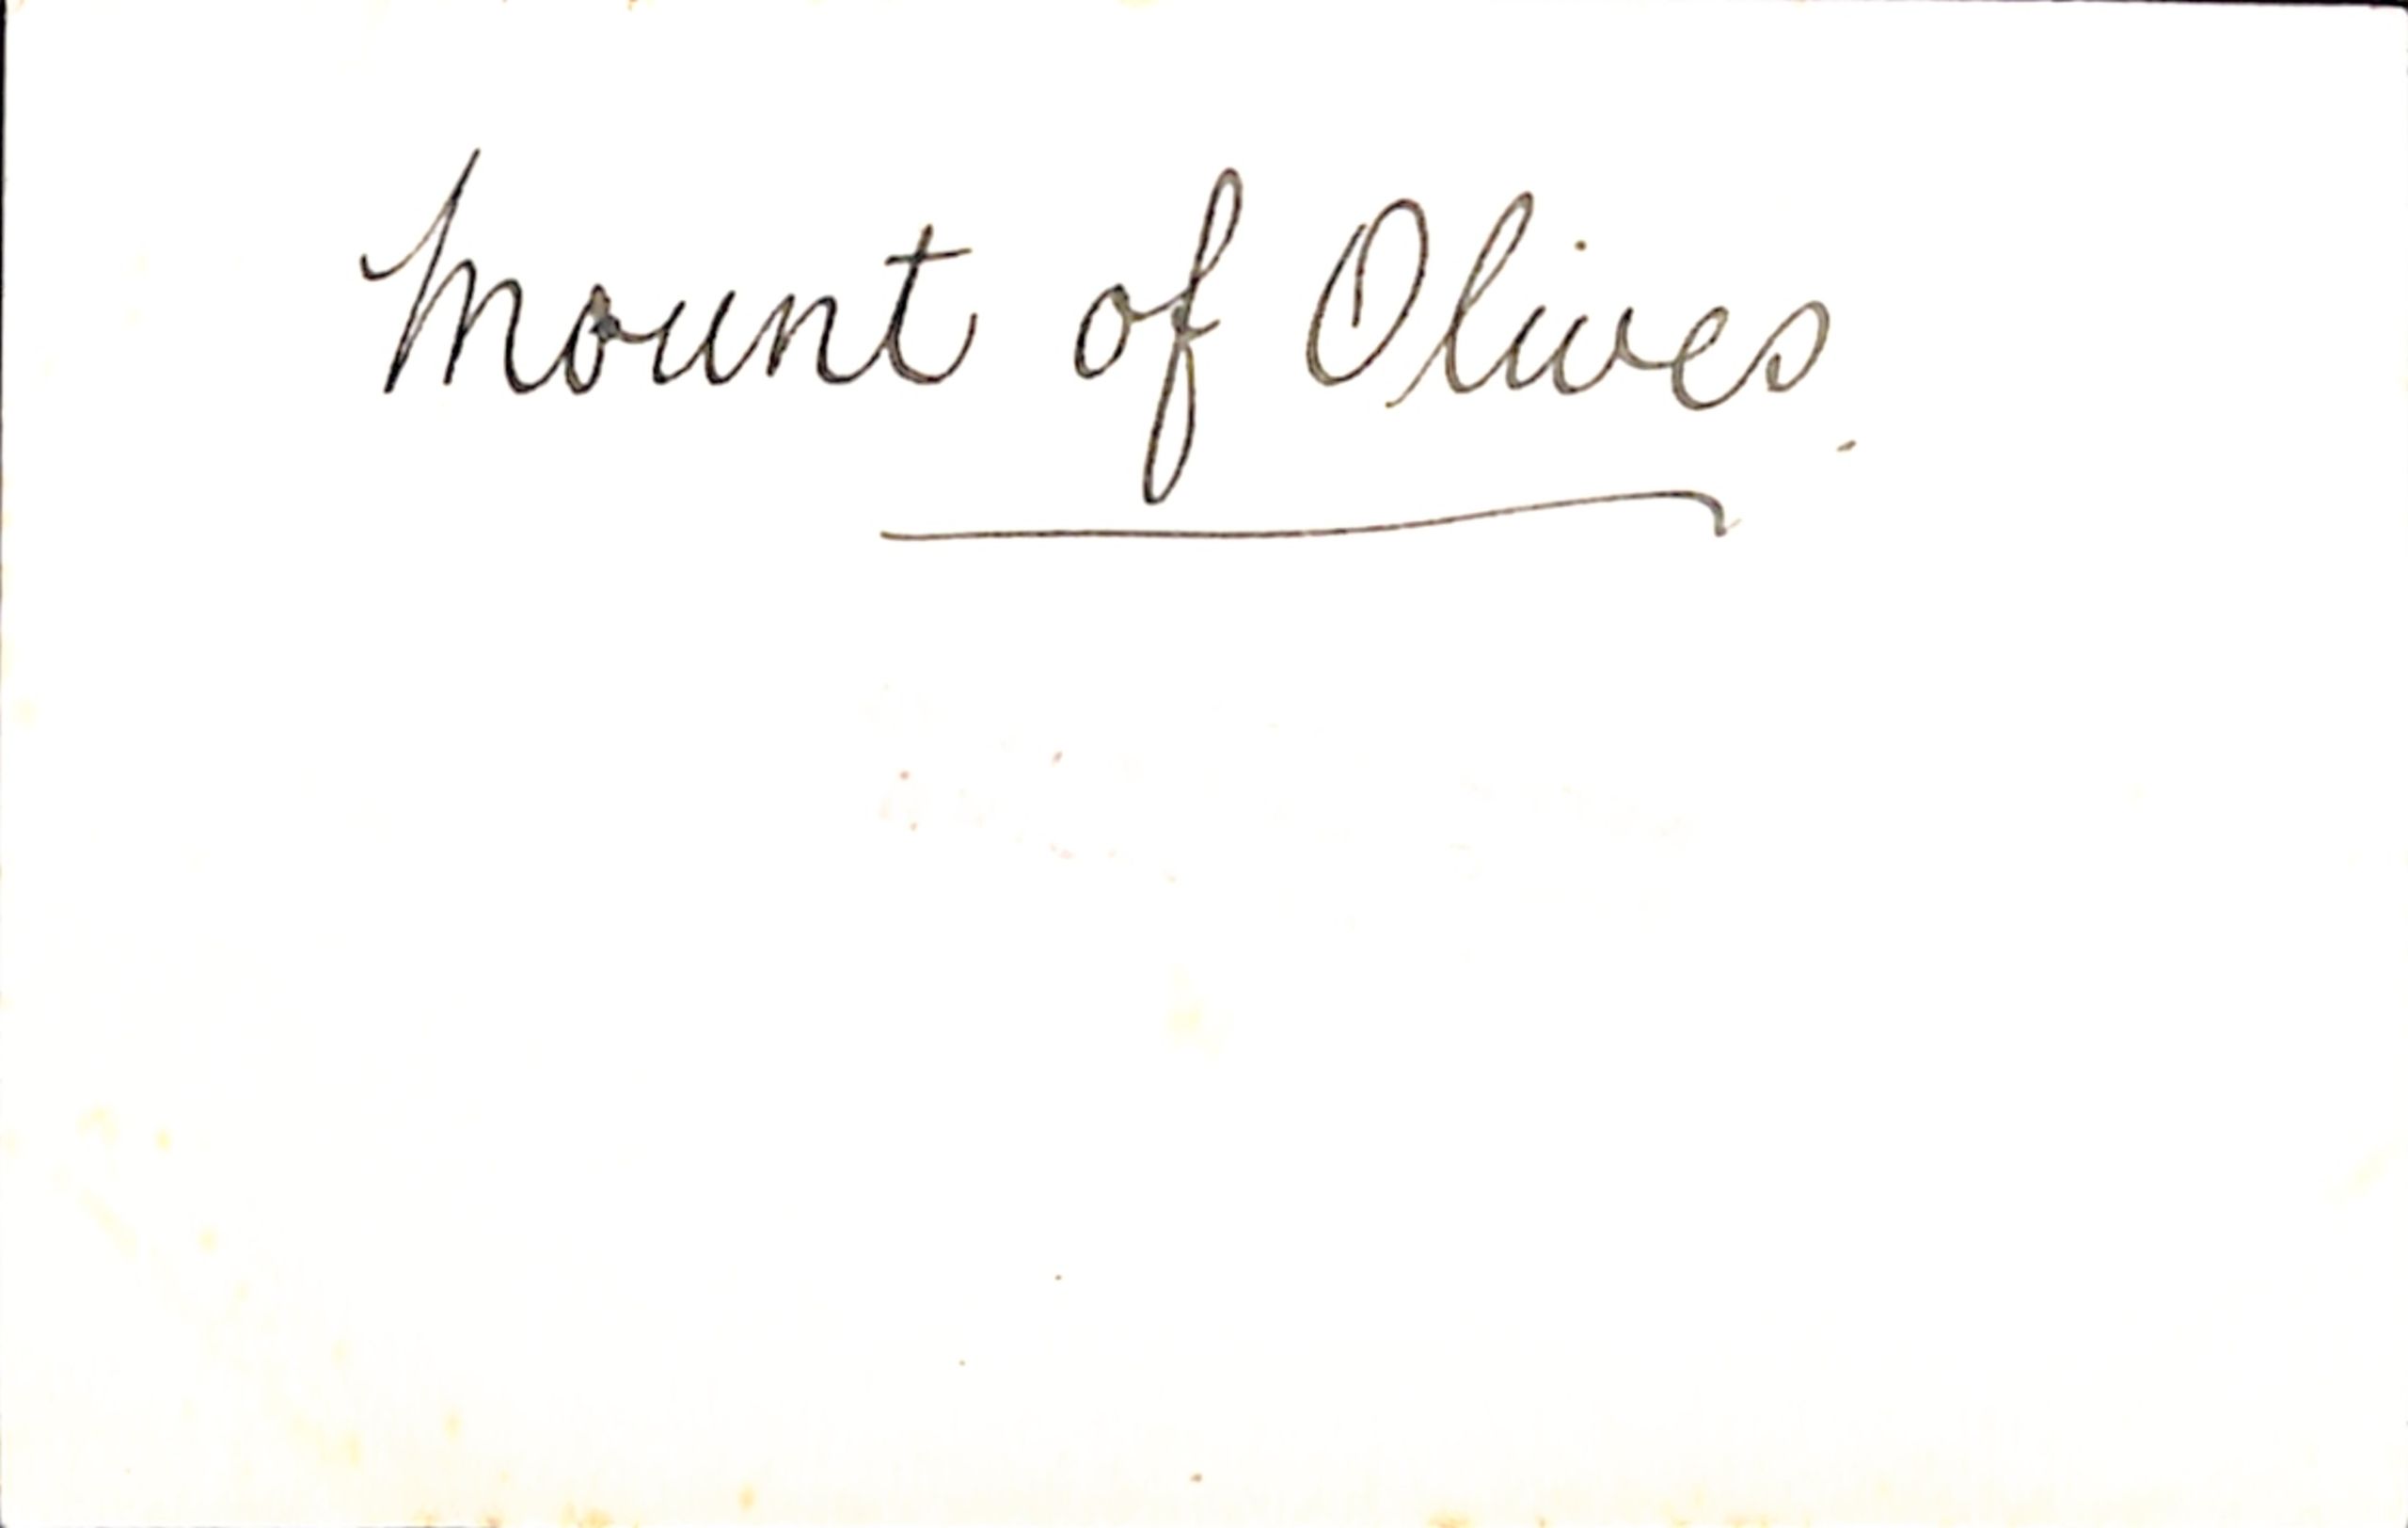 Mount of Olives.